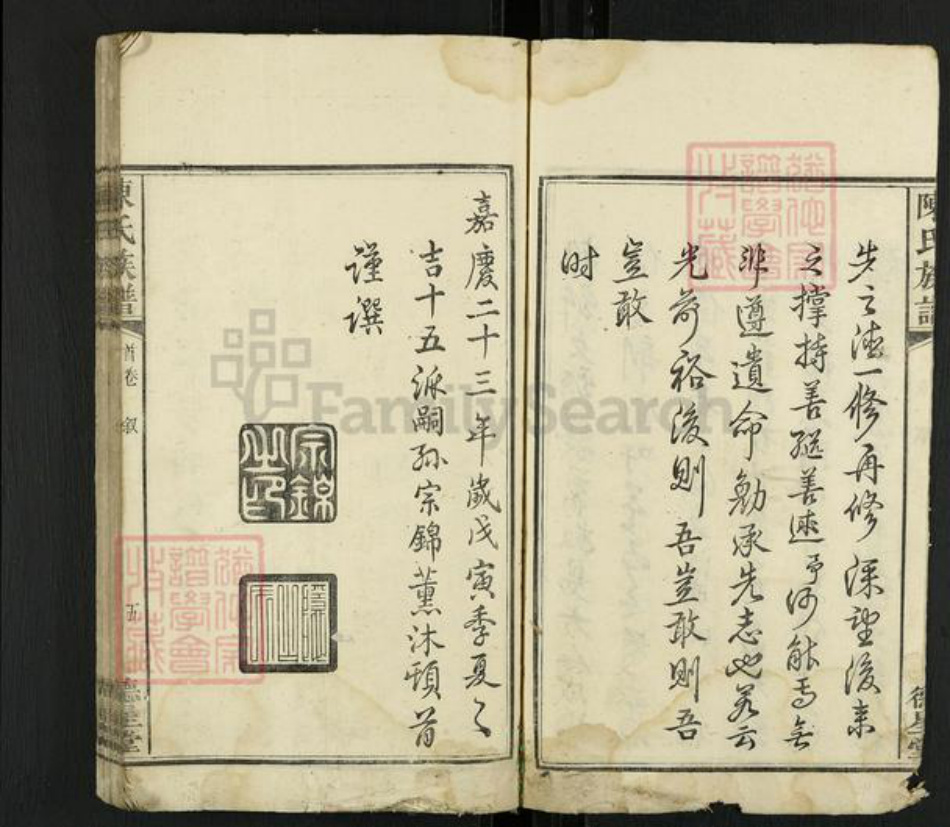 陳氏族譜
先之澤一修再修深望後來
之撐持善繼善述予何能焉無
非遵遺命勉承先志也若云
光前裕後則吾豈敢則吾
豈敢
時
嘉慶二十三年歲戊寅季夏之
吉十五派嗣孫宗錦薰沐頓首
謹撰
宗錦之印
陳氏族譜
首卷 叙
五
德星堂
FamilySearch